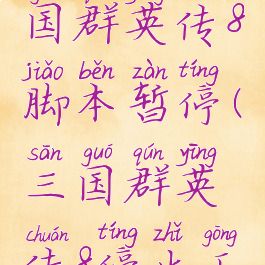 国群英传8
jiǎo běn zàn tíng
脚本暂停(
sān guó qún yīng
三国群英
chuán tíng zhǐ gōng
传8停止